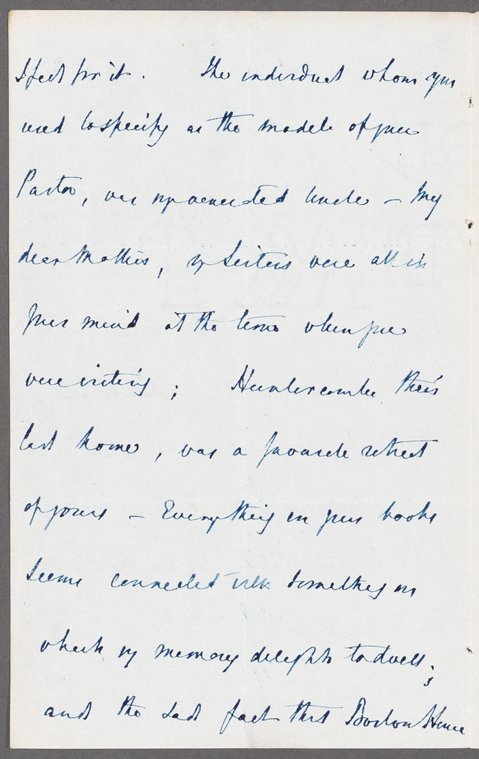 I feel for it. The individual whom you
used to specify as the model of your
Pastor, was my venerated Uncle – My
dear Mother, my Sisters were all in
your mind at the time when you
were writing; Huntercombe their
last home, was a favorite retreat
of yours – Everything in your books
seems connected with something on
which my memory delights to dwell;
and the sad fact that Boston House